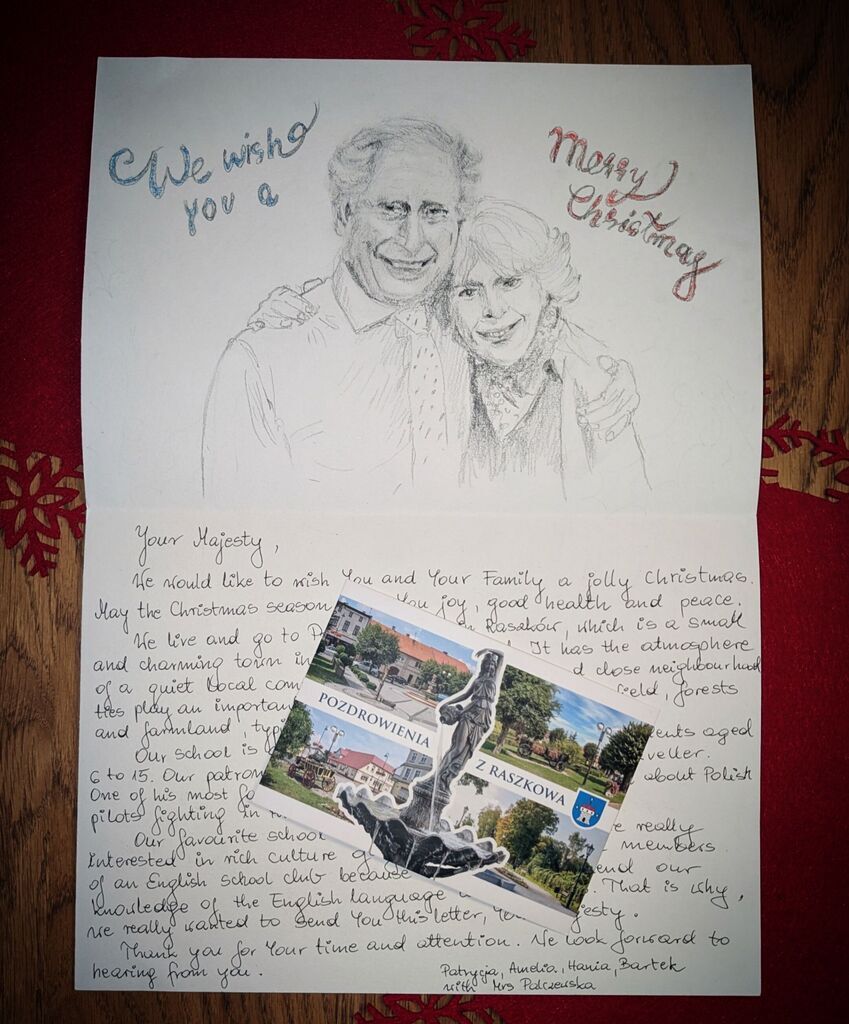 We wish
you a
Merry
Christmas
Your Majesty,
We would like to wish You and Your Family a jolly Christmas.
May the Christmas season You joy, good health and peace.
We live and go to Raszków, which is a small
and charming town in It has the atmosphere
of a quiet local d close neighbourhood
ties play an important forests
and farmland,
Our school is ents aged
6 to 15. Our patron veller.
One of his most about Polish
pilots fighting in
Our favourite school e really
interested in rich culture members
of an English school club because end our
knowledge of the English language That is why,
we really wanted to send You this letter, jesty.
Thank you for Your time and attention. We look forward to
hearing from you.
Patrycja, Amelia, Hania, Bartek
with Mrs Palczewska
POZDROWIENIA
Z RASZKOWA